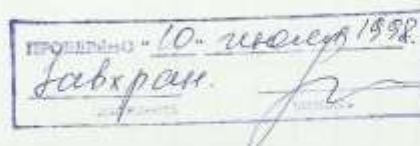 ПРОВЕРЕНО "10" июля 1998
Завхран.